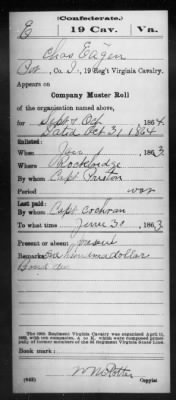 (Confederate.)
E 19 Cav. Va.
Chas Eagen
Pvt, Co. I, 19 Reg't Virginia Cavalry.
Appears on
Company Muster Roll
of the organization named above,
for Sept & Oct, 1864.
Dated Oct 31 1864
Enlisted:
When Jan 1, 1863.
Where Rockbridge
By whom Capt. Preston
Period war
Last paid:
By whom Capt Cochran
To what time June 30, 1863.
Present or absent Present
Remarks: dollar
Bond due
The 19th Regiment Virginia Cavalry was organized April 11, 1863, with ten companies, A to K, which were composed principally of former members of the 3d Regiment Virginia State Line.
Book mark:
(642) Copyist.